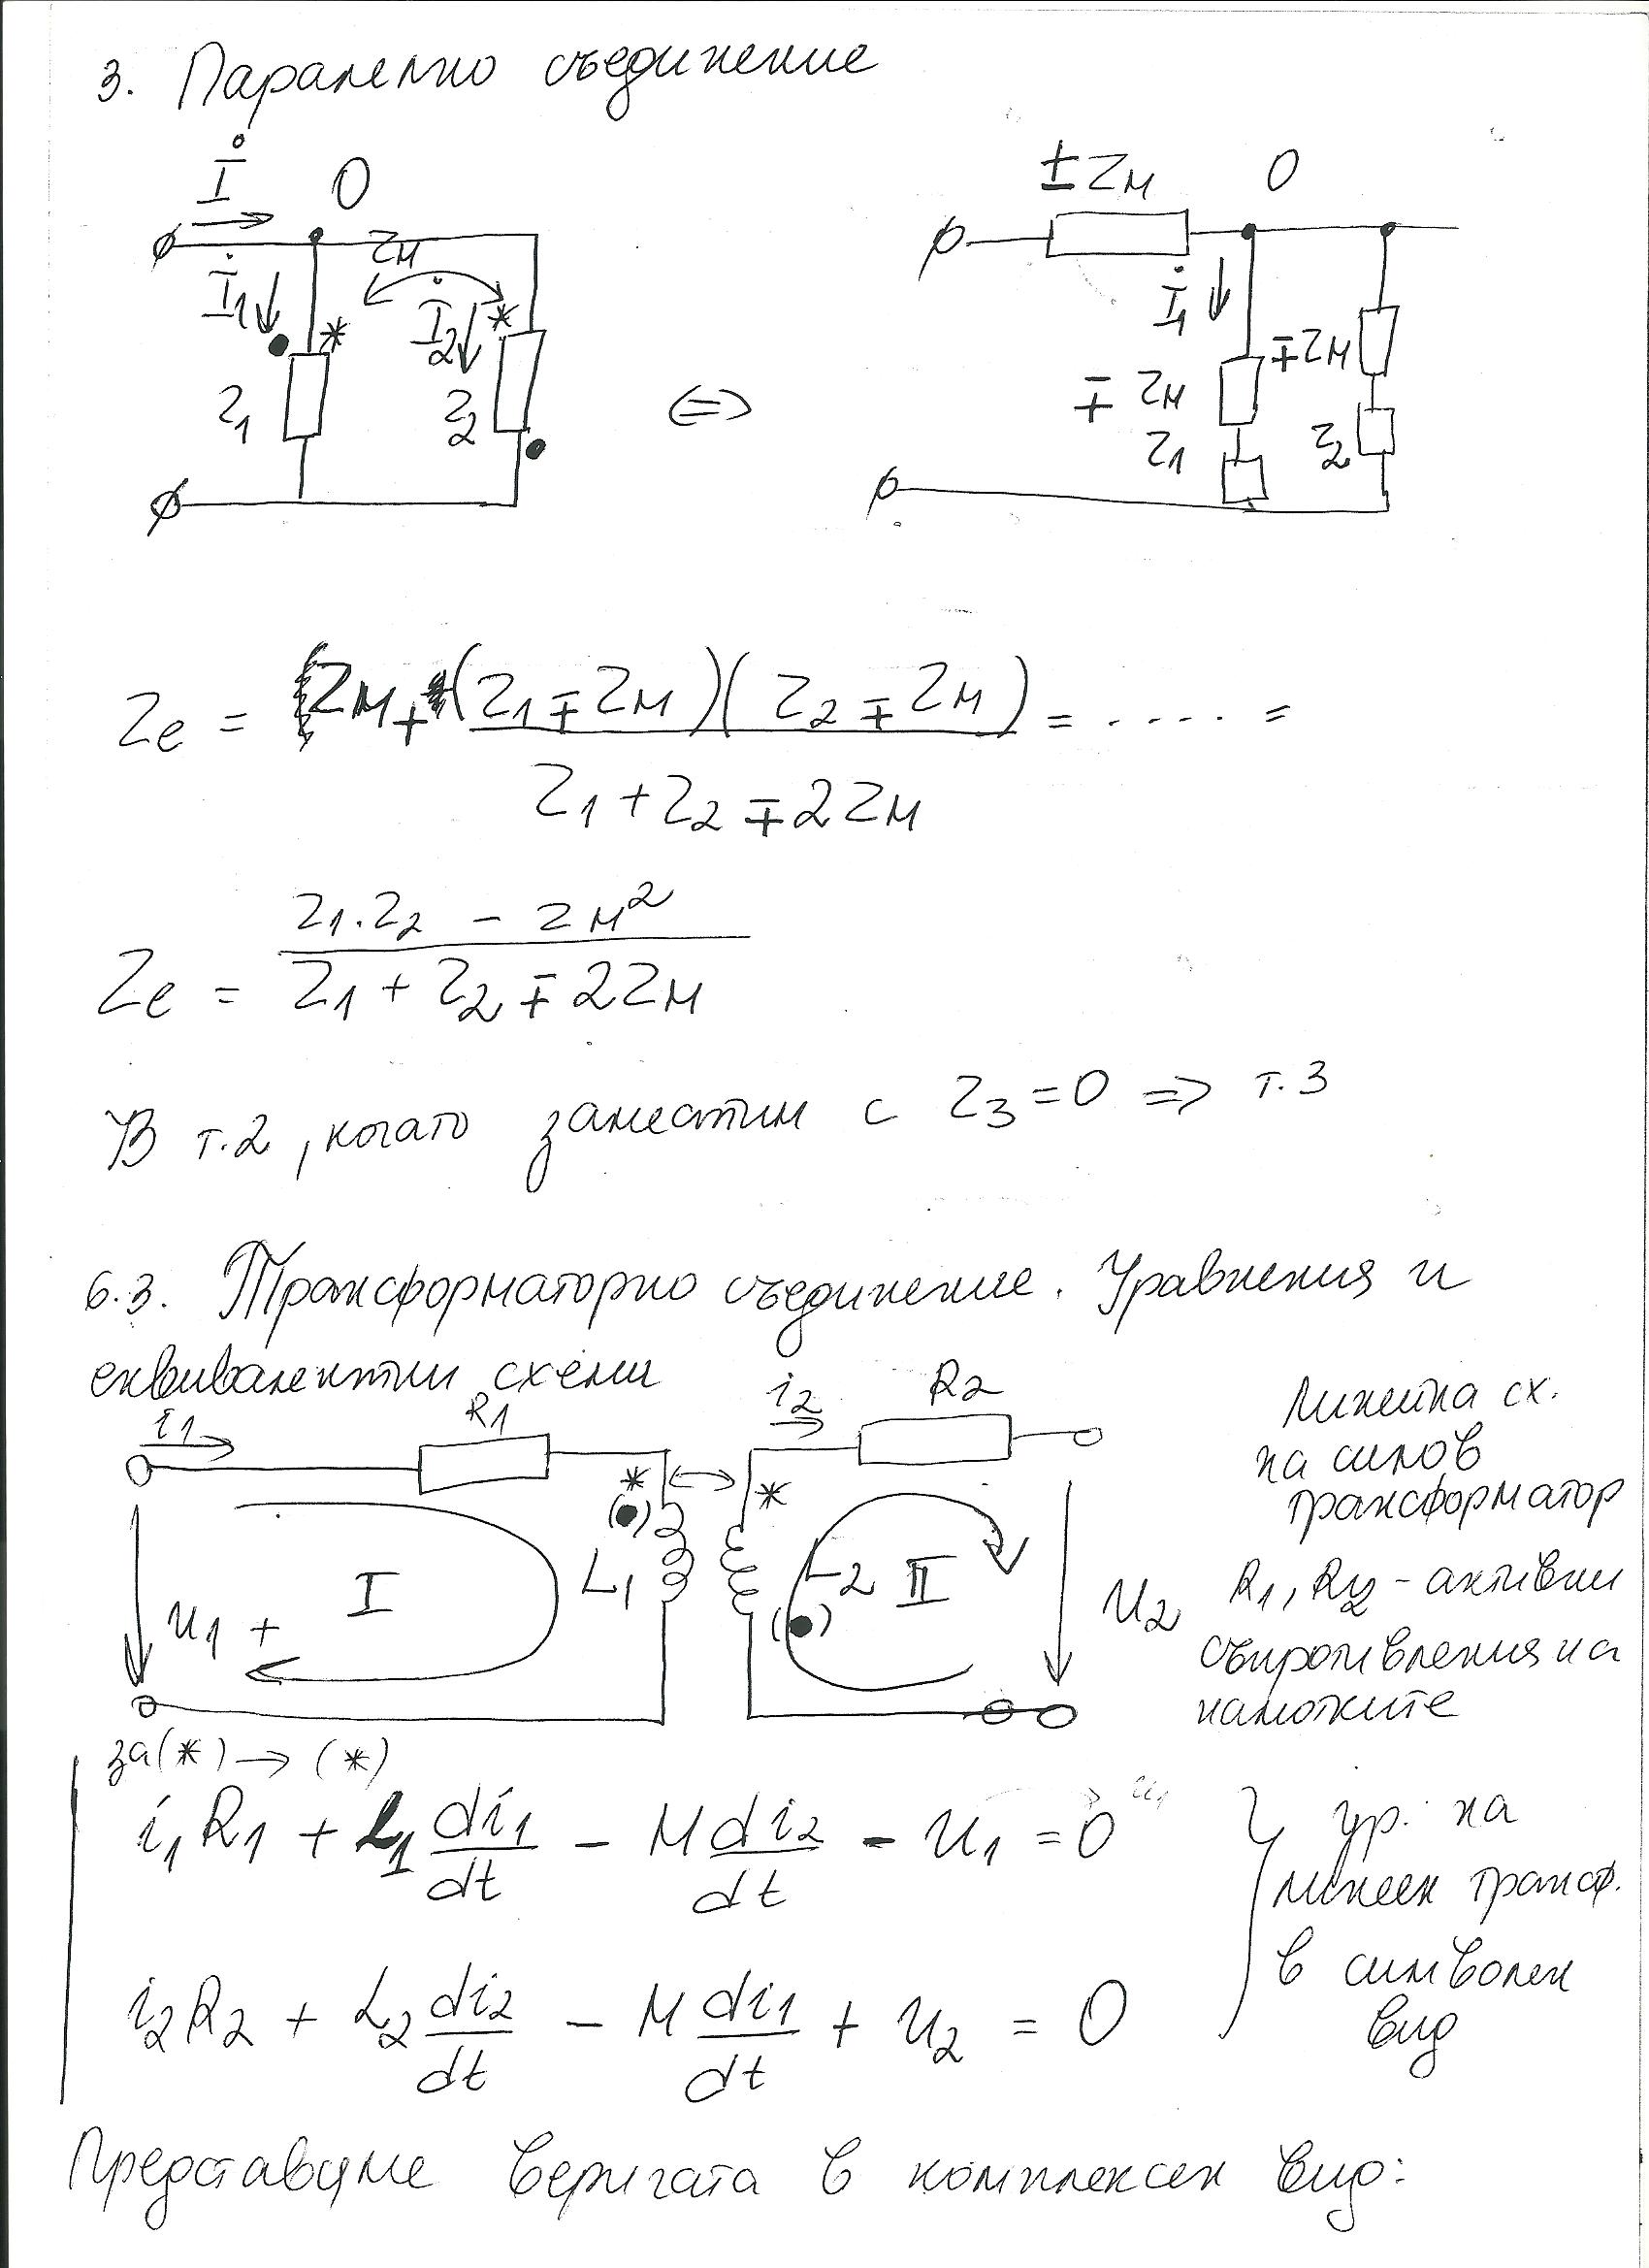 3. Паралелно съединение
İ 0
Zм
İ1 * İ2 *
Z1 Z2
⇔
±Zм 0
İ1
∓Zм ∓Zм
Z1 Z2
Ze = Zм + (Z1 ∓ Zм)(Z2 ∓ Zм) = .... =
Z1 + Z2 ∓ 2Zм
Z1.Z2 - Zм²
Ze = Z1 + Z2 ∓ 2Zм
В т.2, когато заместим с Z3 = 0 => т.3
6.3. Трансформаторно съединение. Уравнения и
еквивалентни схеми
i1 R1 i2 R2
* ↔ *
(•) L1 L2 (•)
u1 + I II u2
Линейна сх.
на силов
трансформатор
R1, R2 - активни
съпротивления на
намотките
за (*) → (*)
i1R1 + L1 di1/dt - M di2/dt - u1 = 0
i2R2 + L2 di2/dt - M di1/dt + u2 = 0
ур. на
линеен трансф.
в символен
вид
Представяме веригата в комплексен вид: